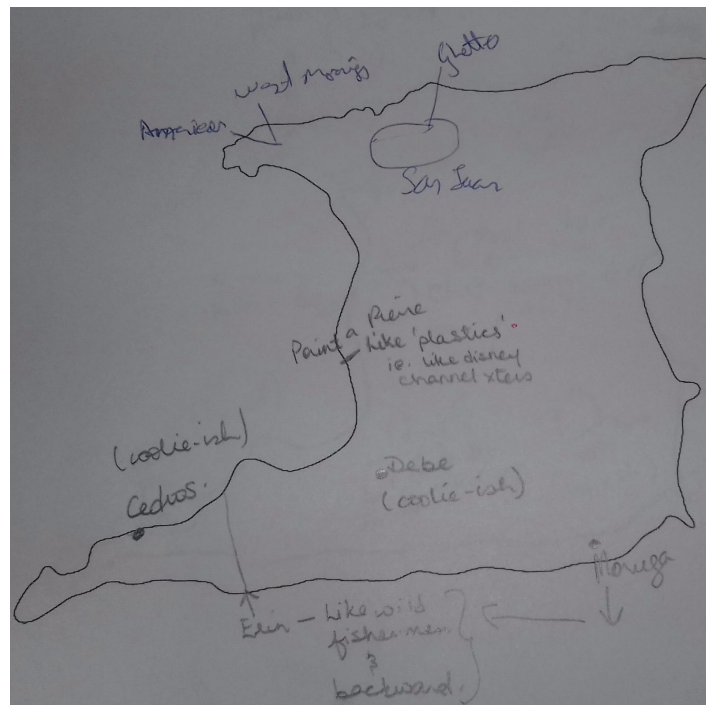 Ghetto
West Moorings
American
San Juan
Point a Pierre
- Like 'plastics'
ie. like disney
channel xters
(coolie-ish)
Cedros.
Debe
(coolie-ish)
Moruga
Erin - Like wild
fishermen
&
backward.